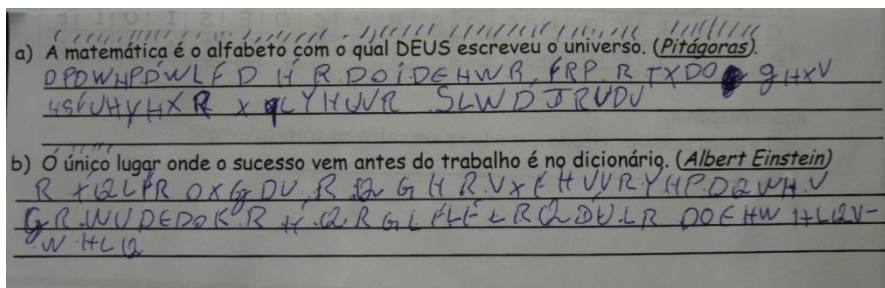 a) A matemática é o alfabeto com o qual DEUS escreveu o universo. (Pitágoras).
D PDWHPDWLFD H R DOIDEHWR FRP R TXDO GHXV
HSFUHYHX R XQLYHUVR SLWDJRUDV
b) O único lugar onde o sucesso vem antes do trabalho é no dicionário. (Albert Einstein)
R XQLFR OXGDU RQGH R VXFHVVR YHP DQWHV
GR WUDEDOKR H QR GLFLRQDULR DOEHW HLQV-
WHLQ